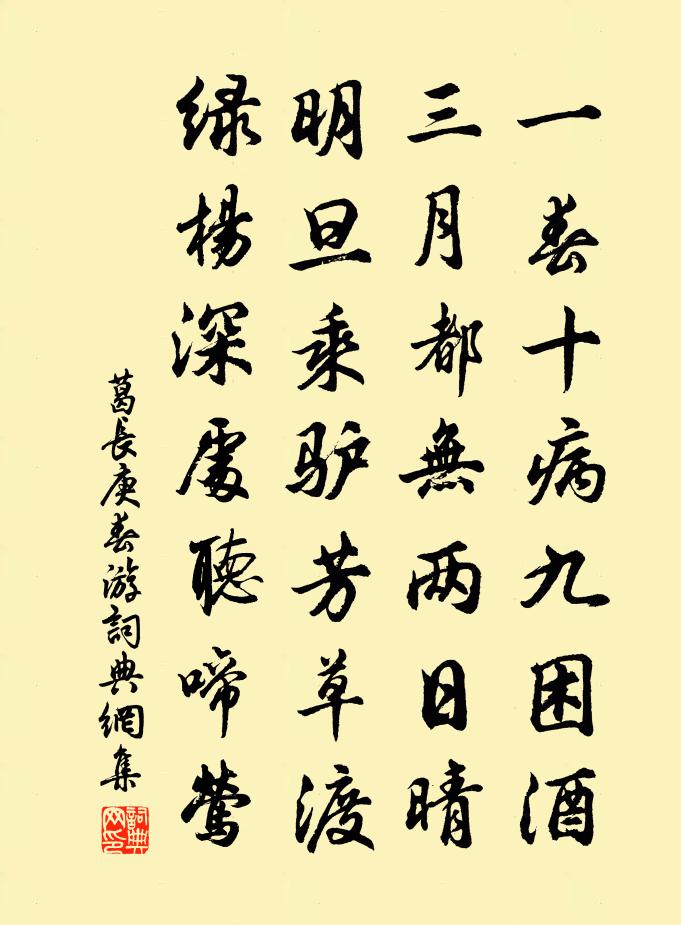 一春十病九困酒
三月都無两日晴
明旦乘驴芳草渡
绿楊深處聽啼莺
葛長庚春游詞典網集
詞典网印